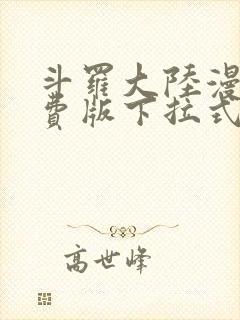 斗羅大陸漫
費版下拉式
高世峰